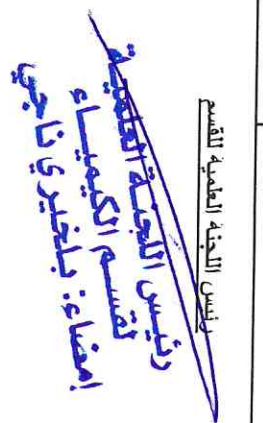 رئيس اللجنة العلمية للقسم
رئيس اللجنة العلمية
لقسم الكيمياء
إمضاء: بلخيري ناجي